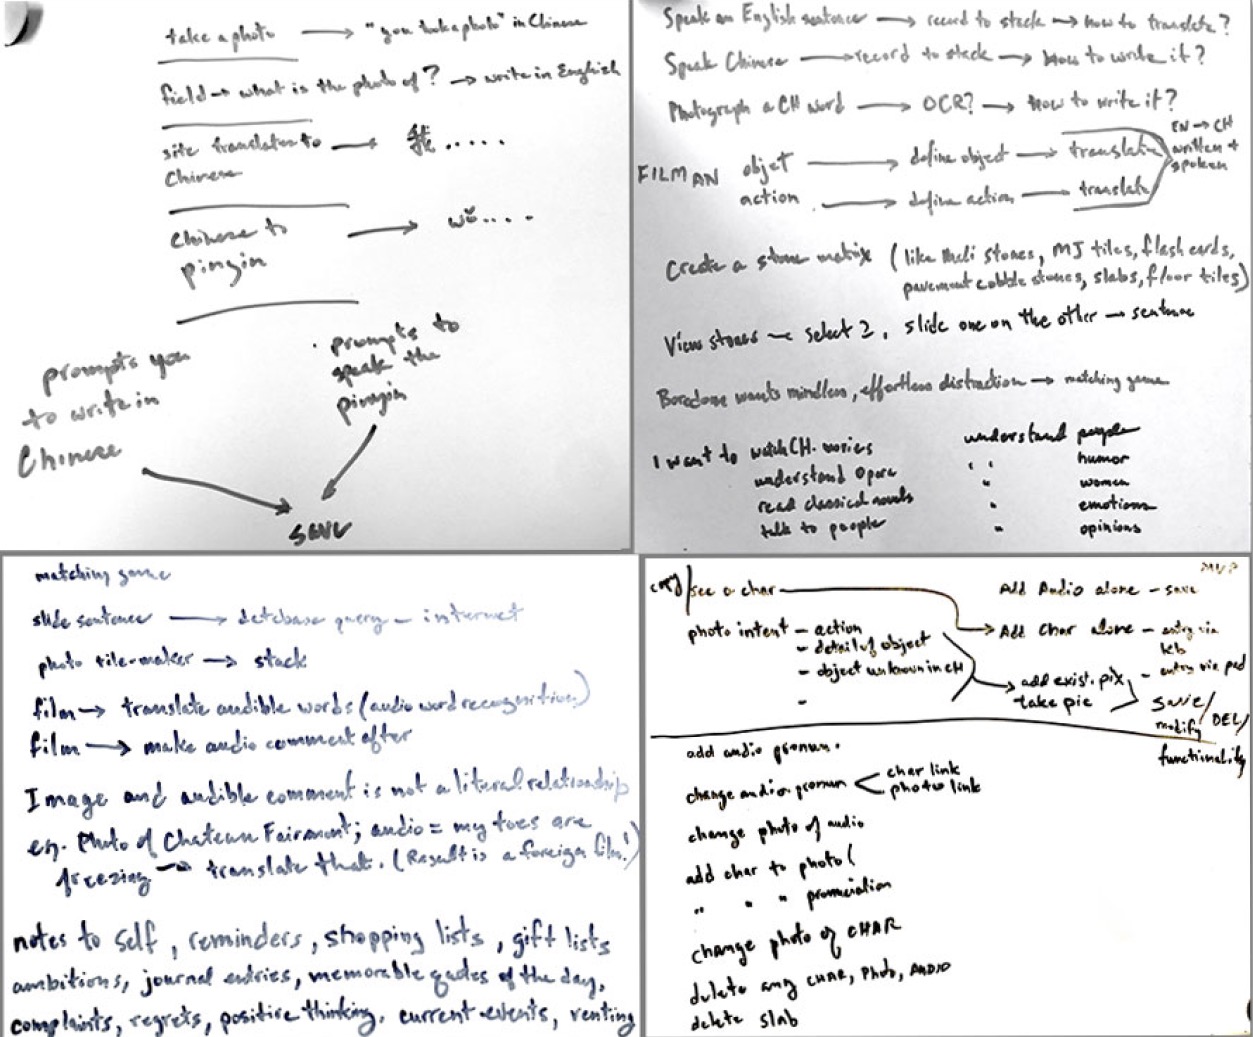 take a photo → "you took a photo" in Chinese
field → what is the photo of? → write in English
site translates to → 我.....
Chinese
Chinese to → wǒ....
pinyin
prompts you
to write in
Chinese
prompts to
speak the
pinyin
save
Speak an English sentence → record to stack → how to translate?
Speak Chinese → record to stack → how to write it?
Photograph a CH word → OCR? → How to write it?
FILM AN objet → define object → translate
action → define action → translate
EN → CH
written +
spoken
Create a stone matrix (like stones, MJ tiles, flash cards,
pavement cobble stones, slabs, floor tiles)
View stones — select 2, slide one on the other → sentence
Boredom wants mindless, effortless distraction → matching game
I want to watch CH. movies
understand opera
read classical novels
talk to people
understand people
" humor
" women
" emotions
" opinions
matching game
slide sentence → database query — internet
photo tile-maker → stack
film → translate audible words (audio word recognition)
film → make audio comment after
Image and audible comment is not a literal relationship
eg. Photo of Chateau Fairmont; audio = my toes are
freezing → translate that. (Result is a foreign film!)
notes to self, reminders, shopping lists, gift lists
ambitions, journal entries, memorable quotes of the day,
complaints, regrets, positive thinking, current events, venting
MVP
copy/see a char
photo intent - action
- detail of object
- object unknown in CH
-
Add Audio alone - save
Add char alone - entry via
kb
- entry via pad
add exist. pix
take pic
save/
modify/DEL/
functionality
add audio pronun.
change audio pronun < char link
photo link
change photo of audio
add char to photo (
" " " pronunciation
change photo of CHAR
delete any CHAR, Photo, AUDIO
delete slab